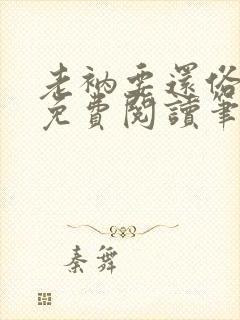 老衲要還俗
免費閱讀筆
秦舞